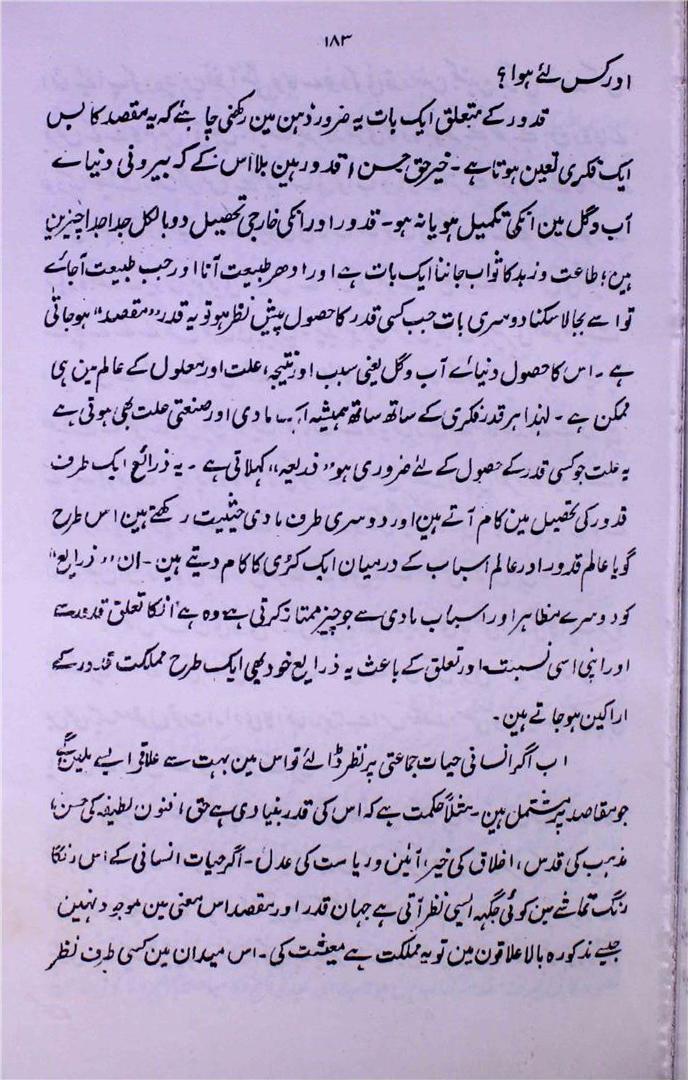 ۱۸۳
اور کس لئے ہوا ؟
قدور کے متعلق ایک بات یہ ضرور ذہن مین رکھنی چاہئے کہ یہ مقصد کا بس
ایک فکری تعین ہوتا ہے ۔ خیر حق حسن اقدور ہین بلا اس کے کہ بیرونی دنیاے
آب و گل مین انکی تکمیل ہو یا نہ ہو۔ قدور اور انکی خارجی تحصیل دو بالکل جدا جدا چیزین
ہین؛ طاعت و زہد کا ثواب جاننا ایک بات ہے اور ادھر طبیعت آنا اور جب طبیعت آجائے
تو اسے بجا لا سکنا دوسری بات جب کسی قدر کا حصول پیش نظر ہو تو یہ قدر "مقصد" ہو جاتی
ہے ۔ اس کا حصول دنیاے آب و گل یعنی سبب اور نتیجہ، علت اور معلول کے عالم مین ہی
ممکن ہے ۔ لہٰذا ہر قدر فکری کے ساتھ ساتھ ہمیشہ ایک مادی اور صنعتی علت بھی ہوتی ہے
یہ علت جو کسی قدر کے حصول کے لئے ضروری ہو "ذریعہ" کہلاتی ہے ۔ یہ ذرائع ایک طرف
قدور کی تحصیل مین کام آتے ہین اور دوسری طرف مادی حیثیت رکھتے ہین اس طرح
گویا عالم قدور اور عالم اسباب کے درمیان ایک کڑی کا کام دیتے ہین ۔ ان "ذرایع"
کو دوسرے مظاہر اور اسباب مادی سے جو چیز ممتاز کرتی ہے وہ ہے انکا تعلق قدور سے
اور اپنی اسی نسبت اور تعلق کے باعث یہ ذرایع خود بھی ایک طرح مملکت قدور کے
اراکین ہو جاتے ہین ۔
اب اگر انسانی حیات جماعتی پر نظر ڈالئے تو اس مین بہت سے علاقے ایسے ملین گے
جو مقاصد پر مشتمل ہین۔ مثلاً حکمت ہے کہ اس کی قدر بنیادی ہے حق افنون لطیفہ کی حسن،
مذہب کی قدس، اخلاق کی خیر، آئین و ریاست کی عدل ۔ اگر حیات انسانی کے اس رنگا
رنگ تماشے مین کوئی جگہہ ایسی نظر آتی ہے جہان قدر اور مقصد اس معنی مین موجود نہین
جیسے مذکورہ بالا علاقون مین تو یہ مملکت ہے معیشت کی ۔ اس میدان مین کسی طرف نظر